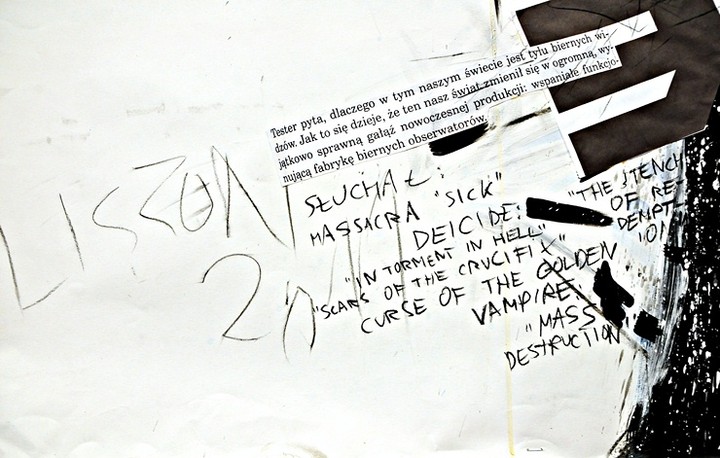 Tester pyta, dlaczego w tym naszym świecie jest tylu biernych wi-
dzów. Jak to się dzieje, że ten nasz świat zmienił się w ogromną, wy-
jątkowo sprawną gałąź nowoczesnej produkcji: wspaniałe funkcjo-
nującą fabrykę biernych obserwatorów.
SŁUCHAŁ:
MASSACRA "SICK"
DEICIDE:
"IN TORMENT IN HELL"
"SCARS OF THE CRUCIFIX"
"THE STENCH
OF RE-
DEMPT-
ION"
CURSE OF THE GOLDEN
VAMPIRE:
"MASS
DESTRUCTION"